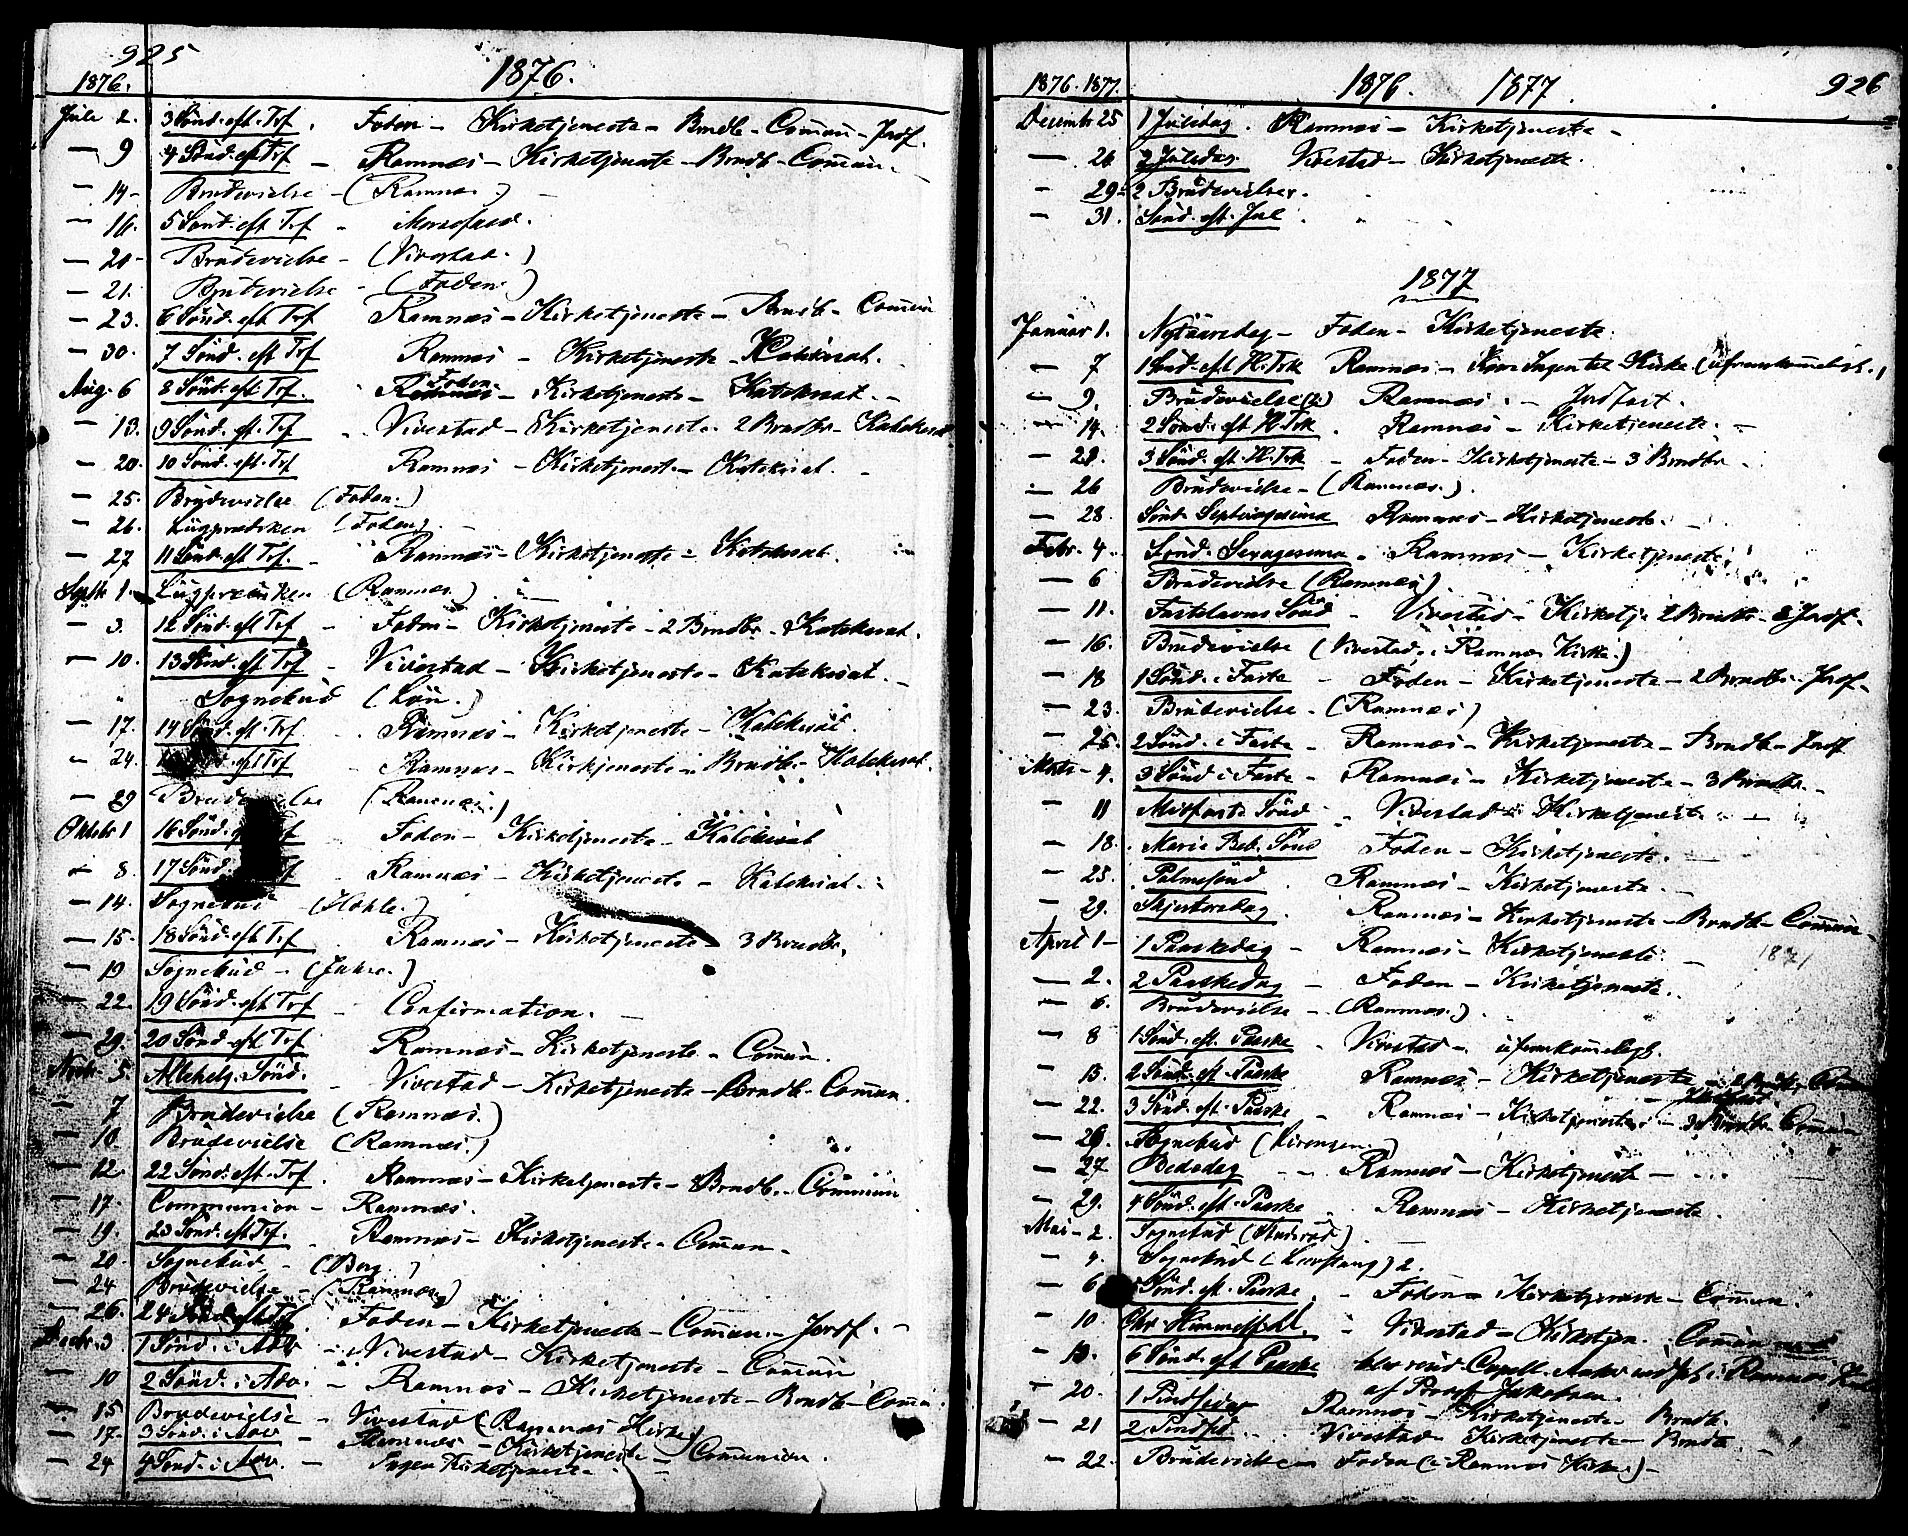 925
1876. 1876.
Juli 2. 3 Sönd. eft. Trf. Foden - Kirketjeneste - Brudb - Commun - Jordf.
— 9 4 Sönd. eft Trf - Ramnæs - Kirketjeneste - Brudb - Commun.
— 14 - Brudevielse - (Ramnæs.) -
— 16. 5 Sönd. eft Trf
— 20 - Brudevielse - (Vivestad.)
— 21. Brudevielse - (Foden.)
— 23. 6 Sönd. eft Trf Ramnæs - Kirketjeneste - Brudb - Commun
— 30. 7 Sönd. eft Trf Ramnæs - Kirketjeneste - Katekisat.
Aug. 6 8 Sönd. eft. Trf. Foden - Kirketjeneste - Katekisat. -
— 13. 9 Sönd. eft. Trf Vivestad - Kirketjeneste - 2 Brudbr - Katekisat
— 20. 10 Sönd. eft. Trf Ramnæs - Kirketjeneste - Katekisat. -
— 25. Brudevielse (Foden.)
— 26. Lügprædiken (Foden). -
— 27 11 Sönd. eft Trf. - Ramnæs - Kirketjeneste - Katekisat.
Septb 1. Lügprædiken (Ramnæs.)
— 3. 12 Sönd. eft Trf - Foden - Kirketjeneste - 2 Brudbr - Katekisat.
— 10. 13 Sönd. eft Trf - Vivestad - Kirketjeneste - Katekisat. -
" Sognebud (Lön.)
— 17. 14 Sönd. eft Trf. Ramnæs - Kirketjeneste - Katekisat.
— 24. eft Trf Ramnæs - Kirkjeneste - Brudb - Katekisat.
— 29 (Ramnæs.)
Oktobr 1 16 Sönd. Foden - Kirketjeneste - Katekisat
— 8. 17 Sönd. Ramnæs - Kirketjeneste - Katekisat.
— 14. Sognebud - (Hohle.)
— 15. 18 Sönd. eft Trf Ramnæs - Kirketjeneste - 3 Brudbr.
— 19 Sognebud -
— 22. 19 Sönd. eft Trf - Confirmation. -
— 29. 20 Sönd. eft Trf Ramnæs - Kirketjeneste - Commun.
Novbr. 5. Allehelg. Sönd. - Vivestad - Kirketjeneste - Brudb - Commun.
— 7 Brudevielse (Ramnæs.)
— 10. Brudevielse (Ramnæs.)
— 12. 22 Sönd. eft. Trf. Ramnæs - Kirketjeneste - Brudb. - Commun
— 17. Communion - Ramnæs.
— 19. 23 Sönd. eft Trf. Ramnæs - Kirketjeneste - Commun -
— 20. Sognebud - (Berg.)
— 24 Brudevielse - (Ramnæs)
— 26. 24 Sönd. eft Trf Foden - Kirketjeneste - Commun. - Jordf. -
Decbr. 3 1 Sönd. i Adv - Vivestad - Kirketjeneste - Commun
— 10 2 Sönd. i Adv. - Ramnæs - Kirketjeneste - Brudb - Commun
— 15 Brudevielse - Vivestad (Ramnæs Kirke)
— 17. 3 Sönd. i Adv Ramnæs - Kirketjeneste - Communion.
— 24 4 Sönd. i Adv. - Ingen Kirketjeneste -
1876. 1877. 1876. 1877. 926
Decembr 25 1 Juledag. Ramnæs - Kirketjeneste -
— 26 2 Juledag. Vivestad - Kirketjeneste.
— 29 - 2 Brudevielser.
— 31. Sönd. eft. Jul.
1877
Januar 1. Nytaarsdag - Foden - Kirketjeneste
— 7 1 Sönd. eft H.Trk Ramnæs - Kirke (ufremkommeligt.)
— 9. Brudevielse (2) Ramnæs. - Jordfæst.
— 14. 2 Sönd. eft H.Trk. Ramnæs - Kirketjeneste. -
— 21. 3 Sönd. eft. H.Trk - Foden - Kirketjeneste - 3 Brudbr.
— 26 Brudevielse - (Ramnæs.)
— 28. Sönd. Septuagesima Ramnæs - Kirketjeneste. -
Febr. 4. Sönd. Sexagesima - Ramnæs - Kirketjeneste
— 6 Brudevielse (Ramnæs)
— 11. Fastelavns Sönd - Vivestad - Kirketj. 2 Brudbr - 2 Jordf.
— 16. Brudevielse (Vivestad, i Ramnæs Kirke.)
— 18 1 Sönd. i Faste - Foden - Kirketjeneste - 2 Brudbr - Jordf.
— 23. Brudevielse - (Ramnæs)
— 25. 2 Sönd. i Faste - Ramnæs - Kirketjeneste - Brudb - Jordf
Marts - 4. 3 Sönd i Faste - Ramnæs - Kirketjeneste - 3 Brudbr. -
— 11 Midfaste Sönd - Vivestad - Kirketjeneste -
— 18. Maria Beb. Sönd Foden - Kirketjeneste. -
— 25. Palmesönd. Ramnæs - Kirketjeneste. -
— 29. Skjertorsdag. Ramnæs - Kirketjeneste - Brudb - Commun
April 1 - 1 Paaskedag - Ramnæs - Kirketjeneste 1871
— 2. 2 Paaskedag - Foden - Kirketjeneste.
— 6. Brudevielse - (Ramnæs.)
— 8 1 Sönd. eft. Paaske - Vivestad - ufremkommeligt.
— 15. 2 Sönd. eft. Paaske Ramnæs - Kirketjeneste - 2 Brudbr. Commun
— 22. 3 Sönd. eft. Paaske - Ramnæs - Kirketjeneste - Brudb - Commun
— 26. Sognebud (Sörensen.)
— 27 Bededag - Ramnæs - Kirketjeneste -
— 29. 4 Sönd. eft. Paaske Ramnæs - Kirketjeneste.
Mai - 2. Sognebud
— 4. Sognebud 2.
— 6 Sönd. eft. Paaske - Foden - Kirketjeneste - Commun.
— 10. Chr. Himmelf. - Vivestad - Kirketjen. Commun
— 13. 6 Sönd. eft Paaske blev Capell. i Ramnæs
af Provst Jakobsen.
— 20. 1 Pindsedag Ramnæs - Kirketjeneste - Brudb.
— 21 2 Pindsed. Vivestad - Kirketjeneste - Brudb.
— 22. Brudevielse - Foden (i Ramnæs Kirke.) -